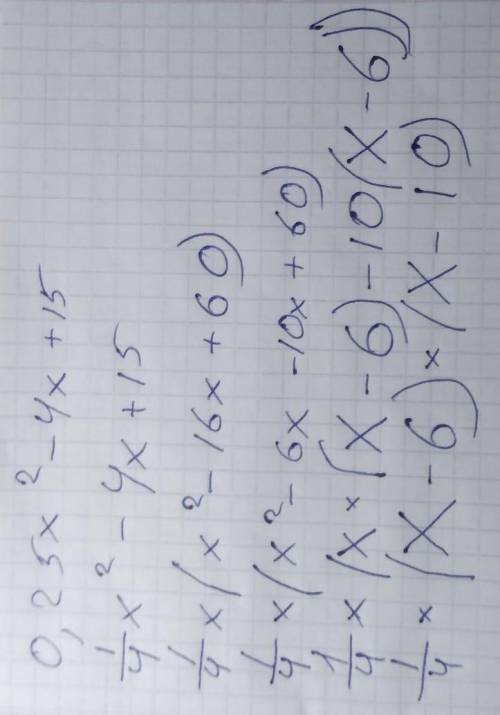 0,25x² - 4x + 15
1/4 x² - 4x + 15
1/4 × (x² - 16x + 60)
1/4 × (x² - 6x - 10x + 60)
1/4 × (x × (x - 6) - 10(x - 6))
1/4 × (x - 6) × (x - 10)